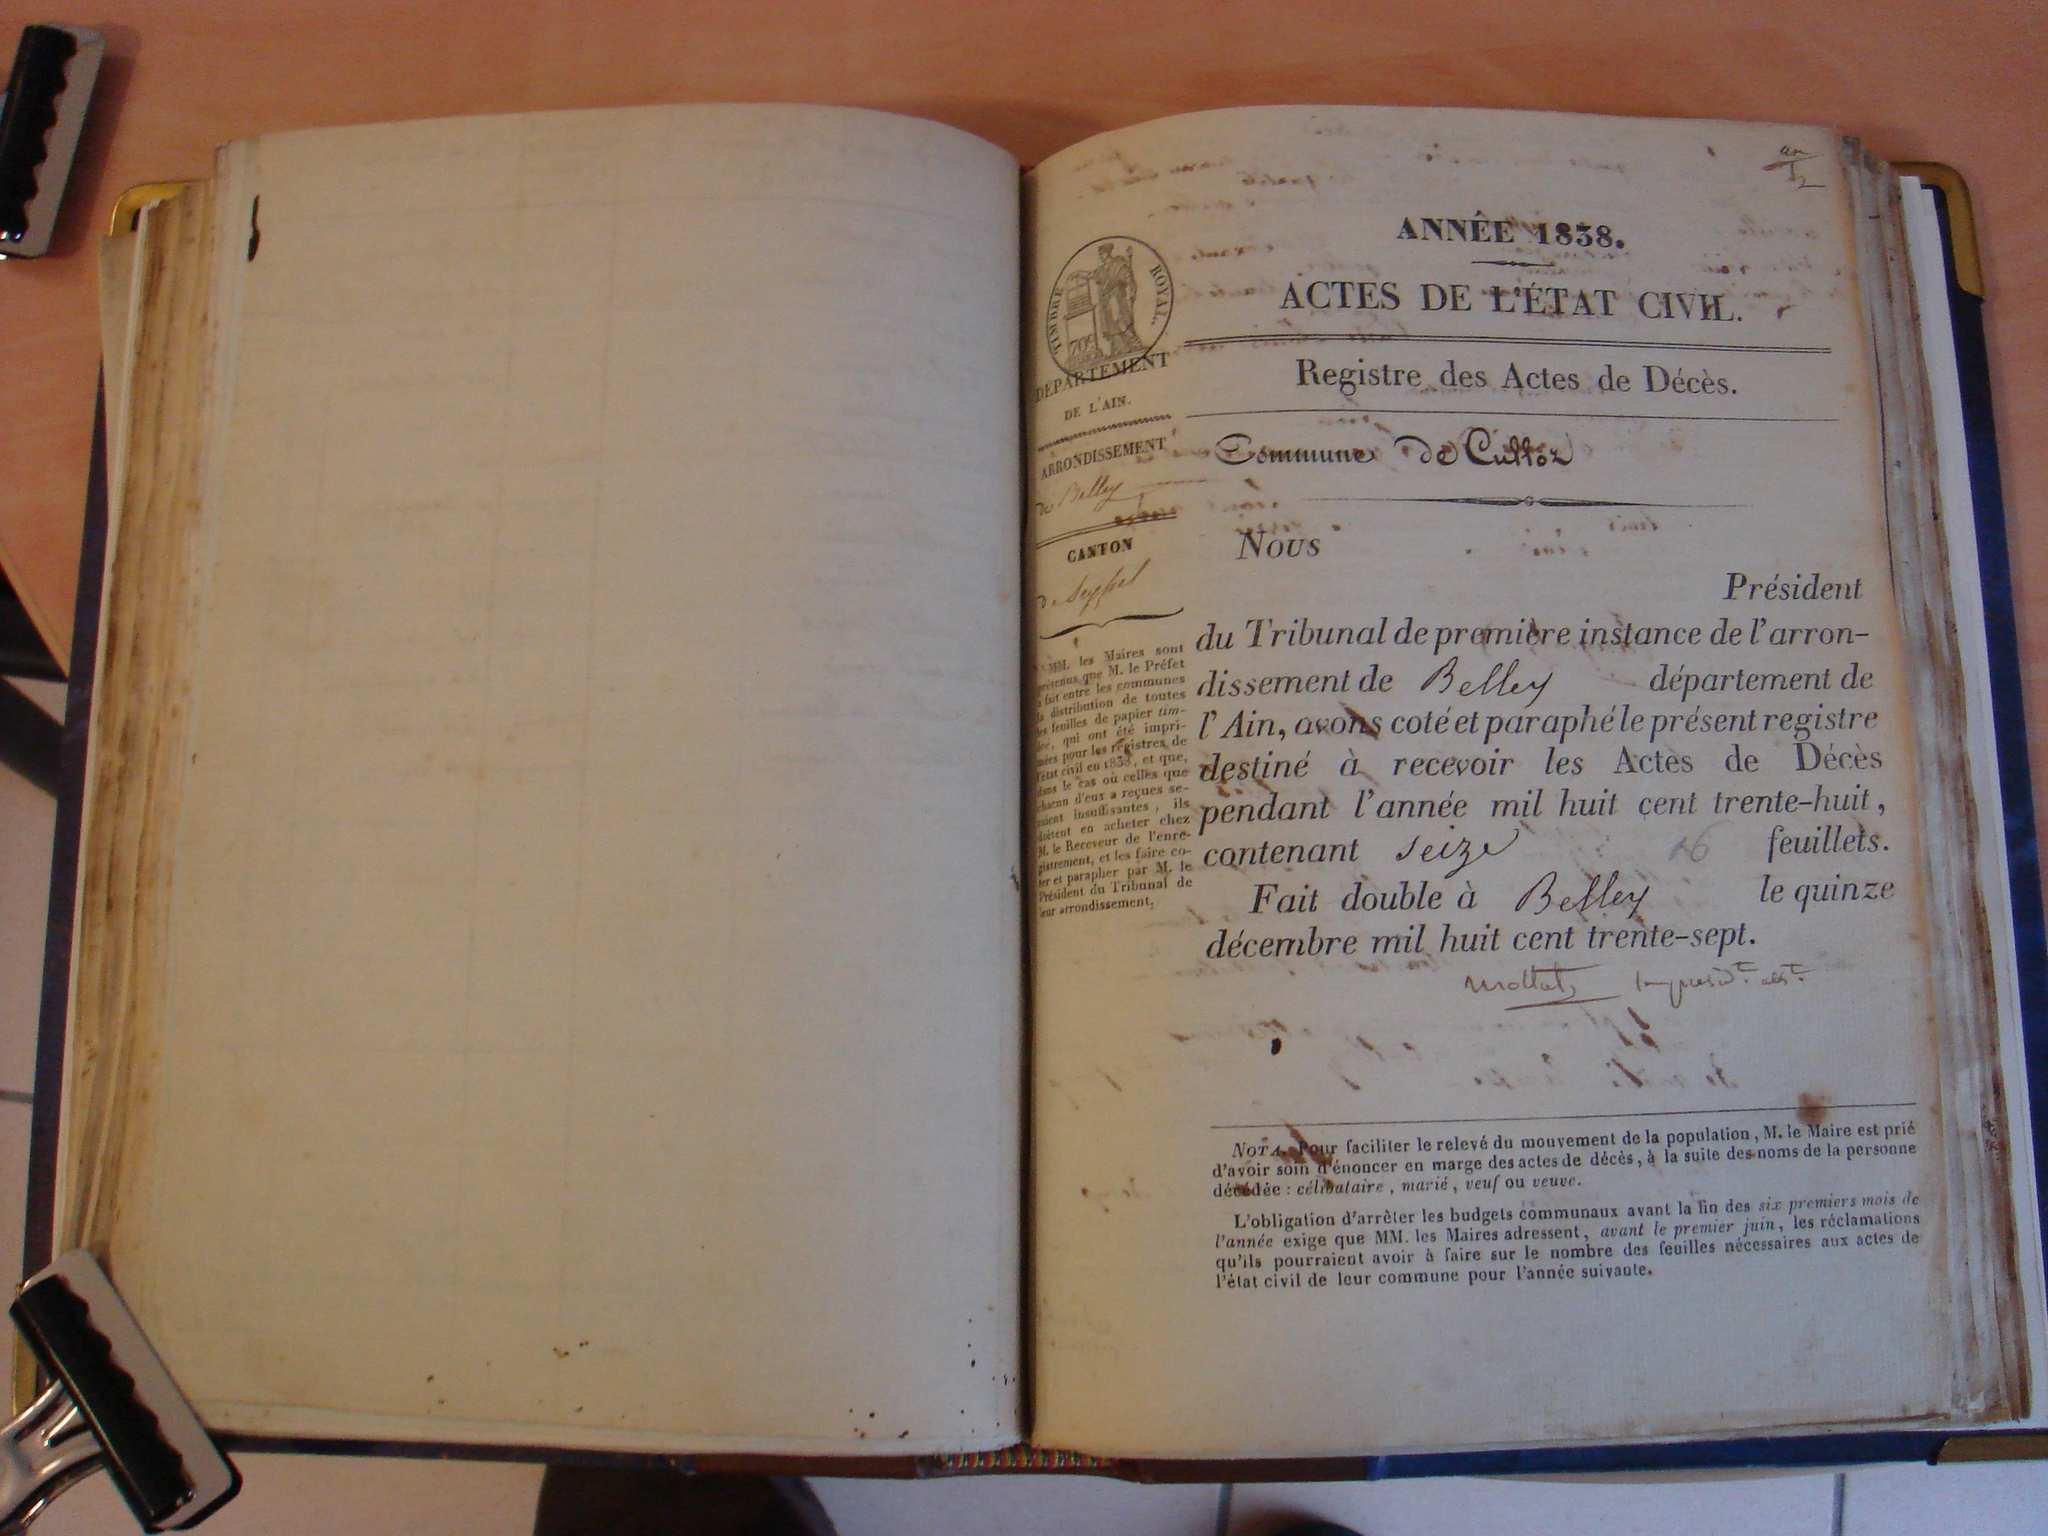 ANNÉE 1838.
ACTES DE L'ÉTAT CIVIL.
Registre des Actes de Décès.
Commune de Culloz
TIMBRE ROYAL.
DÉPARTEMENT
DE L'AIN.
ARRONDISSEMENT
de Belley
CANTON
de Seyssel
MM. les Maires sont
prévenus que M. le Préfet
a fait entre les communes
la distribution de toutes
les feuilles de papier tim-
bré, qui ont été impri-
mées pour les registres de
l'état civil en 1838, et que,
dans le cas où celles que
chacun d'eux a reçues se-
raient insuffisantes, ils
doivent en acheter chez
M. le Receveur de l'enre-
gistrement, et les faire co-
ter et parapher par M. le
Président du Tribunal de
leur arrondissement.
Nous
Président
du Tribunal de première instance de l'arron-
dissement de Belley département de
l'Ain, avons coté et paraphé le présent registre
destiné à recevoir les Actes de Décès
pendant l'année mil huit cent trente-huit,
contenant seize 16 feuillets.
Fait double à Belley le quinze
décembre mil huit cent trente-sept.
NOTA. Pour faciliter le relevé du mouvement de la population, M. le Maire est prié
d'avoir soin d'énoncer en marge des actes de décès, à la suite des noms de la personne
décédée : célibataire, marié, veuf ou veuve.
L'obligation d'arrêter les budgets communaux avant la fin des six premiers mois de
l'année exige que MM. les Maires adressent, avant le premier juin, les réclamations
qu'ils pourraient avoir à faire sur le nombre des feuilles nécessaires aux actes de
l'état civil de leur commune pour l'année suivante.